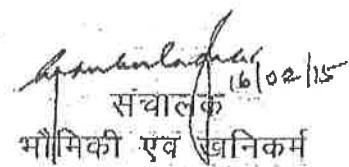 16/02/15
संचालक
भौमिकी एवं खनिकर्म